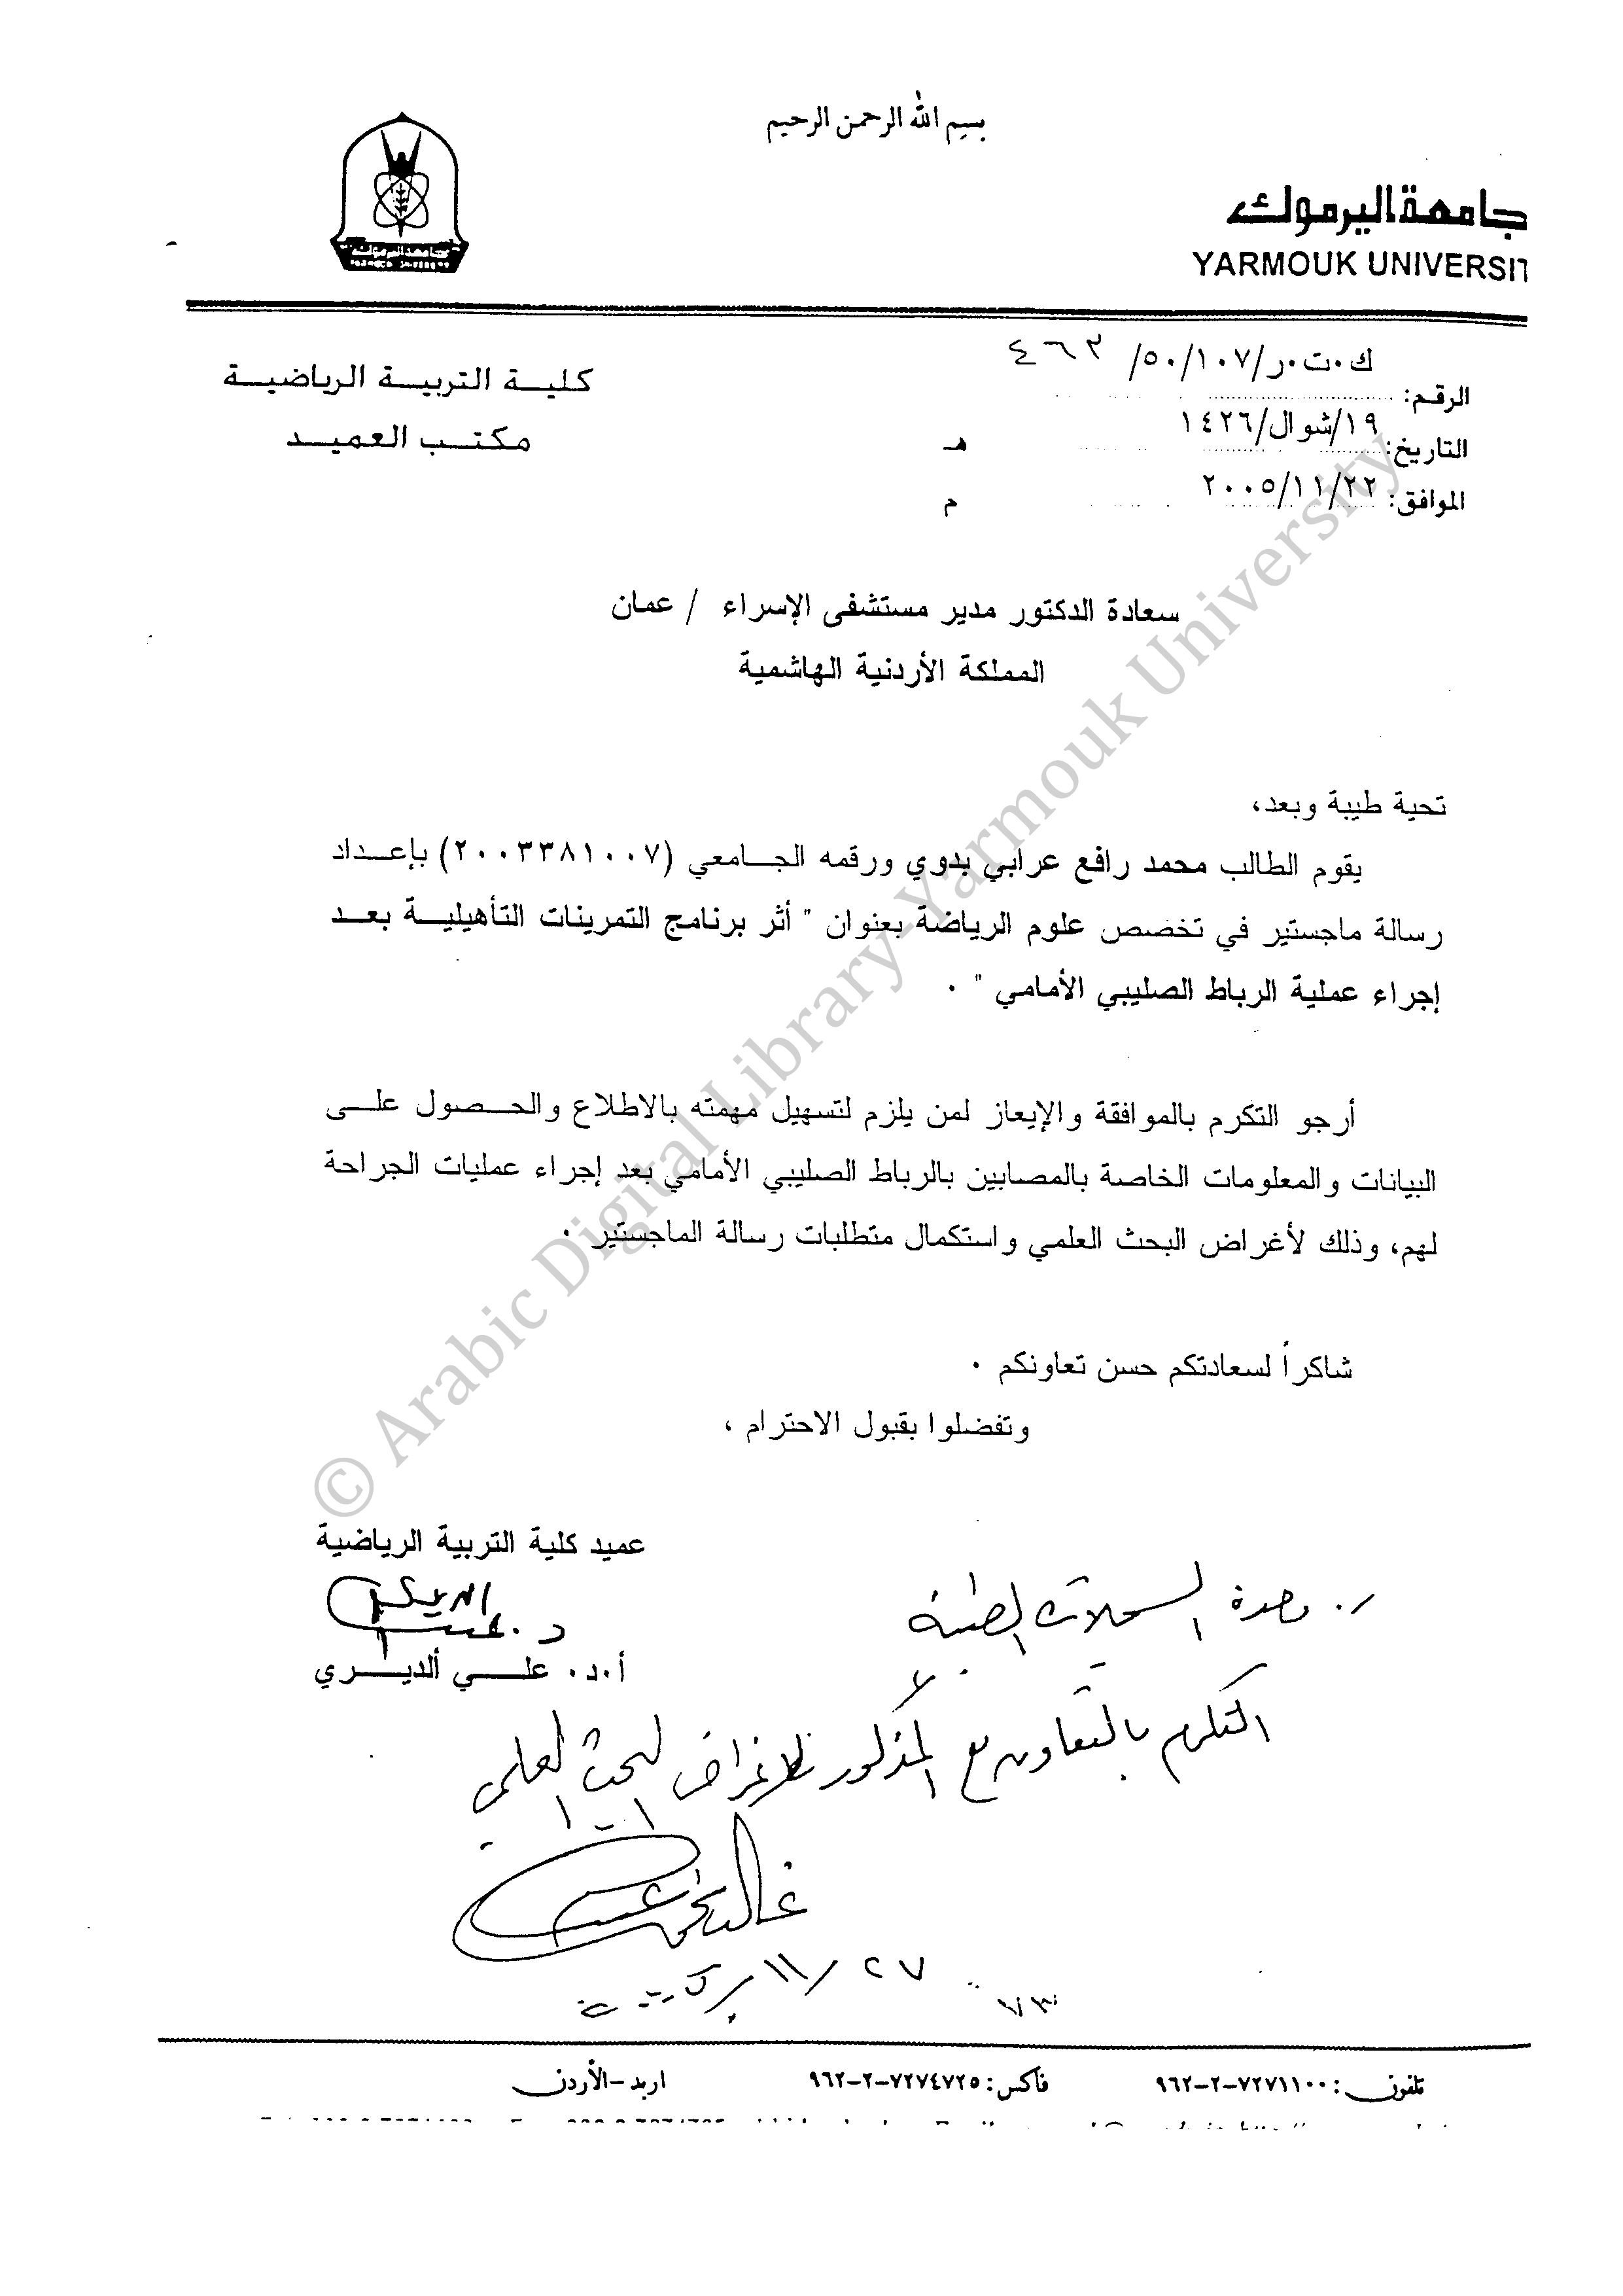 بسم الله الرحمن الرحيم
جامعة اليرموك
YARMOUK UNIVERSIT
ك٠ت٠ر/٥٠/١٠٧/ ٤٦٢
الرقم:
١٩/شوال/١٤٢٦
التاريخ: هـ
٢٠٠٥/١١/٢٢
الموافق: م
كليـة التربيـة الرياضيـة
مكتـب العميـد
سعادة الدكتور مدير مستشفى الإسراء / عمان
المملكة الأردنية الهاشمية
تحية طيبة وبعد،
يقوم الطالب محمد رافع عرابي بدوي ورقمه الجـامعي (٢٠٠٣٣٨١٠٠٧) بإعـداد
رسالة ماجستير في تخصص علوم الرياضة بعنوان " أثر برنامج التمرينات التأهيليـة بعـد
إجراء عملية الرباط الصليبي الأمامي " ٠
أرجو التكرم بالموافقة والإيعاز لمن يلزم لتسهيل مهمته بالاطلاع والحـصول علـى
البيانات والمعلومات الخاصة بالمصابين بالرباط الصليبي الأمامي بعد إجراء عمليات الجراحة
لهم، وذلك لأغراض البحث العلمي واستكمال متطلبات رسالة الماجستير ٠
شاكراً لسعادتكم حسن تعاونكم ٠
وتفضلوا بقبول الاحترام ،
عميد كلية التربية الرياضية
أ٠د٠ علـــي الديـــري
وحدة السجلات الطبية
التكرم بالتعاون مع المذكور لأغراض البحث العلمي
٢٧/١١
تلفون: ٧٢٧١١٠٠-٢-٩٦٢ فاكس: ٧٢٧٤٧٢٥-٢-٩٦٢ اربد-الأردن
© Arabic Digital Library-Yarmouk University